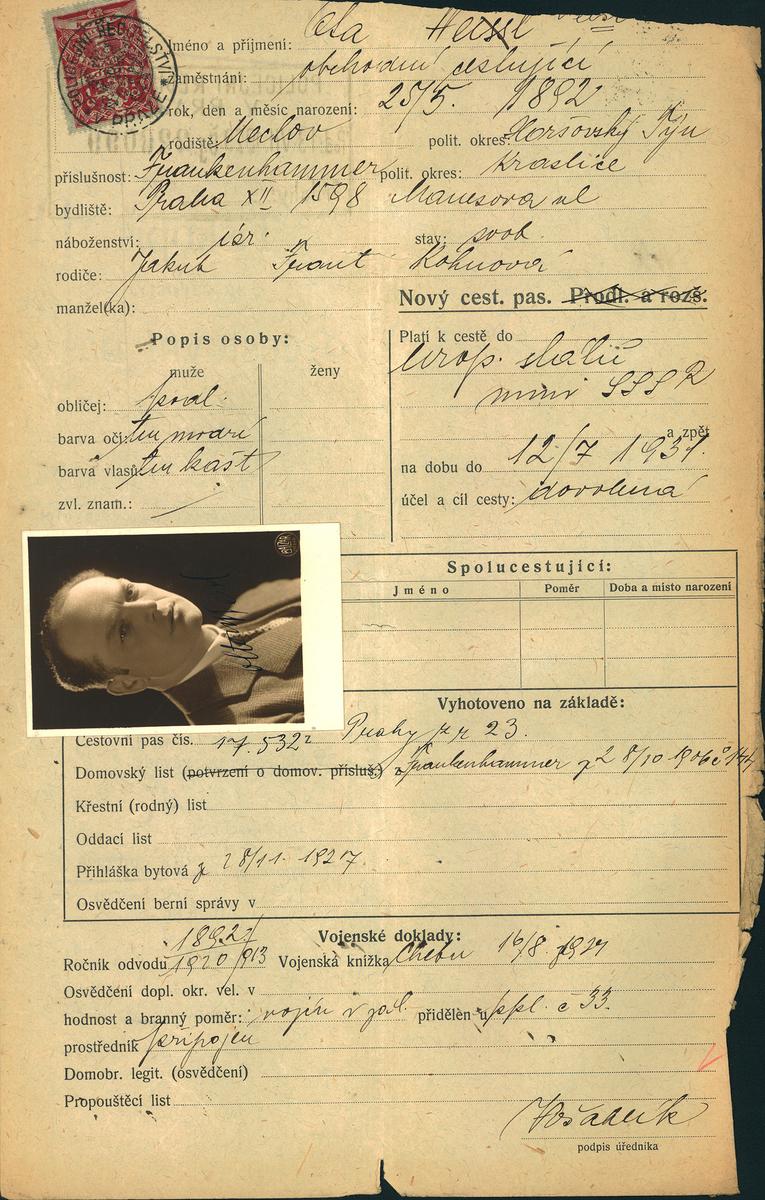 POLICEJNÍ ŘEDITELSTVÍ
PRAZE
Jméno a příjmení: Ota Heissl
zaměstnání: obchodní cestující
rok, den a měsíc narození: 25/5. 1892
rodiště: Meclov polit. okres: Horšovský Týn
příslušnost: Frankenhammer polit. okres: Kraslice
bydliště: Praha XII 1598 Manesova ul
náboženství: isr. stav: svob.
rodiče: Jakub Frant Kohnová
manžel(ka):
Nový cest. pas. Prodl. a rozš.
Popis osoby:
muže ženy
obličej: podl.
barva očí: tm modré
barva vlasů: tm kašt
zvl. znam.:
Platí k cestě do
evrop. států
mimo SSSR
a zpět
na dobu do 12/7 1931.
účel a cíl cesty: dovolená
Spolucestující:
Jméno Poměr Doba a místo narození
Vyhotoveno na základě:
Cestovní pas čís. 17.532 Prahy z r 23.
Domovský list (potvrzení o domov. přísluš.) Frankenhammer z 28/10 1906 č 144
Křestní (rodný) list
Oddací list
Přihláška bytová z 28/11. 1927
Osvědčení berní správy v
Vojenské doklady:
1892
Ročník odvodu 1920/913 Vojenská knížka Chebu 16/8. 1921
Osvědčení dopl. okr. vel. v
hodnost a branný poměr: vojín v zál. přidělen u ppl. č 33.
prostředník připojen
Domobr. legit. (osvědčení)
Propouštěcí list
podpis úředníka